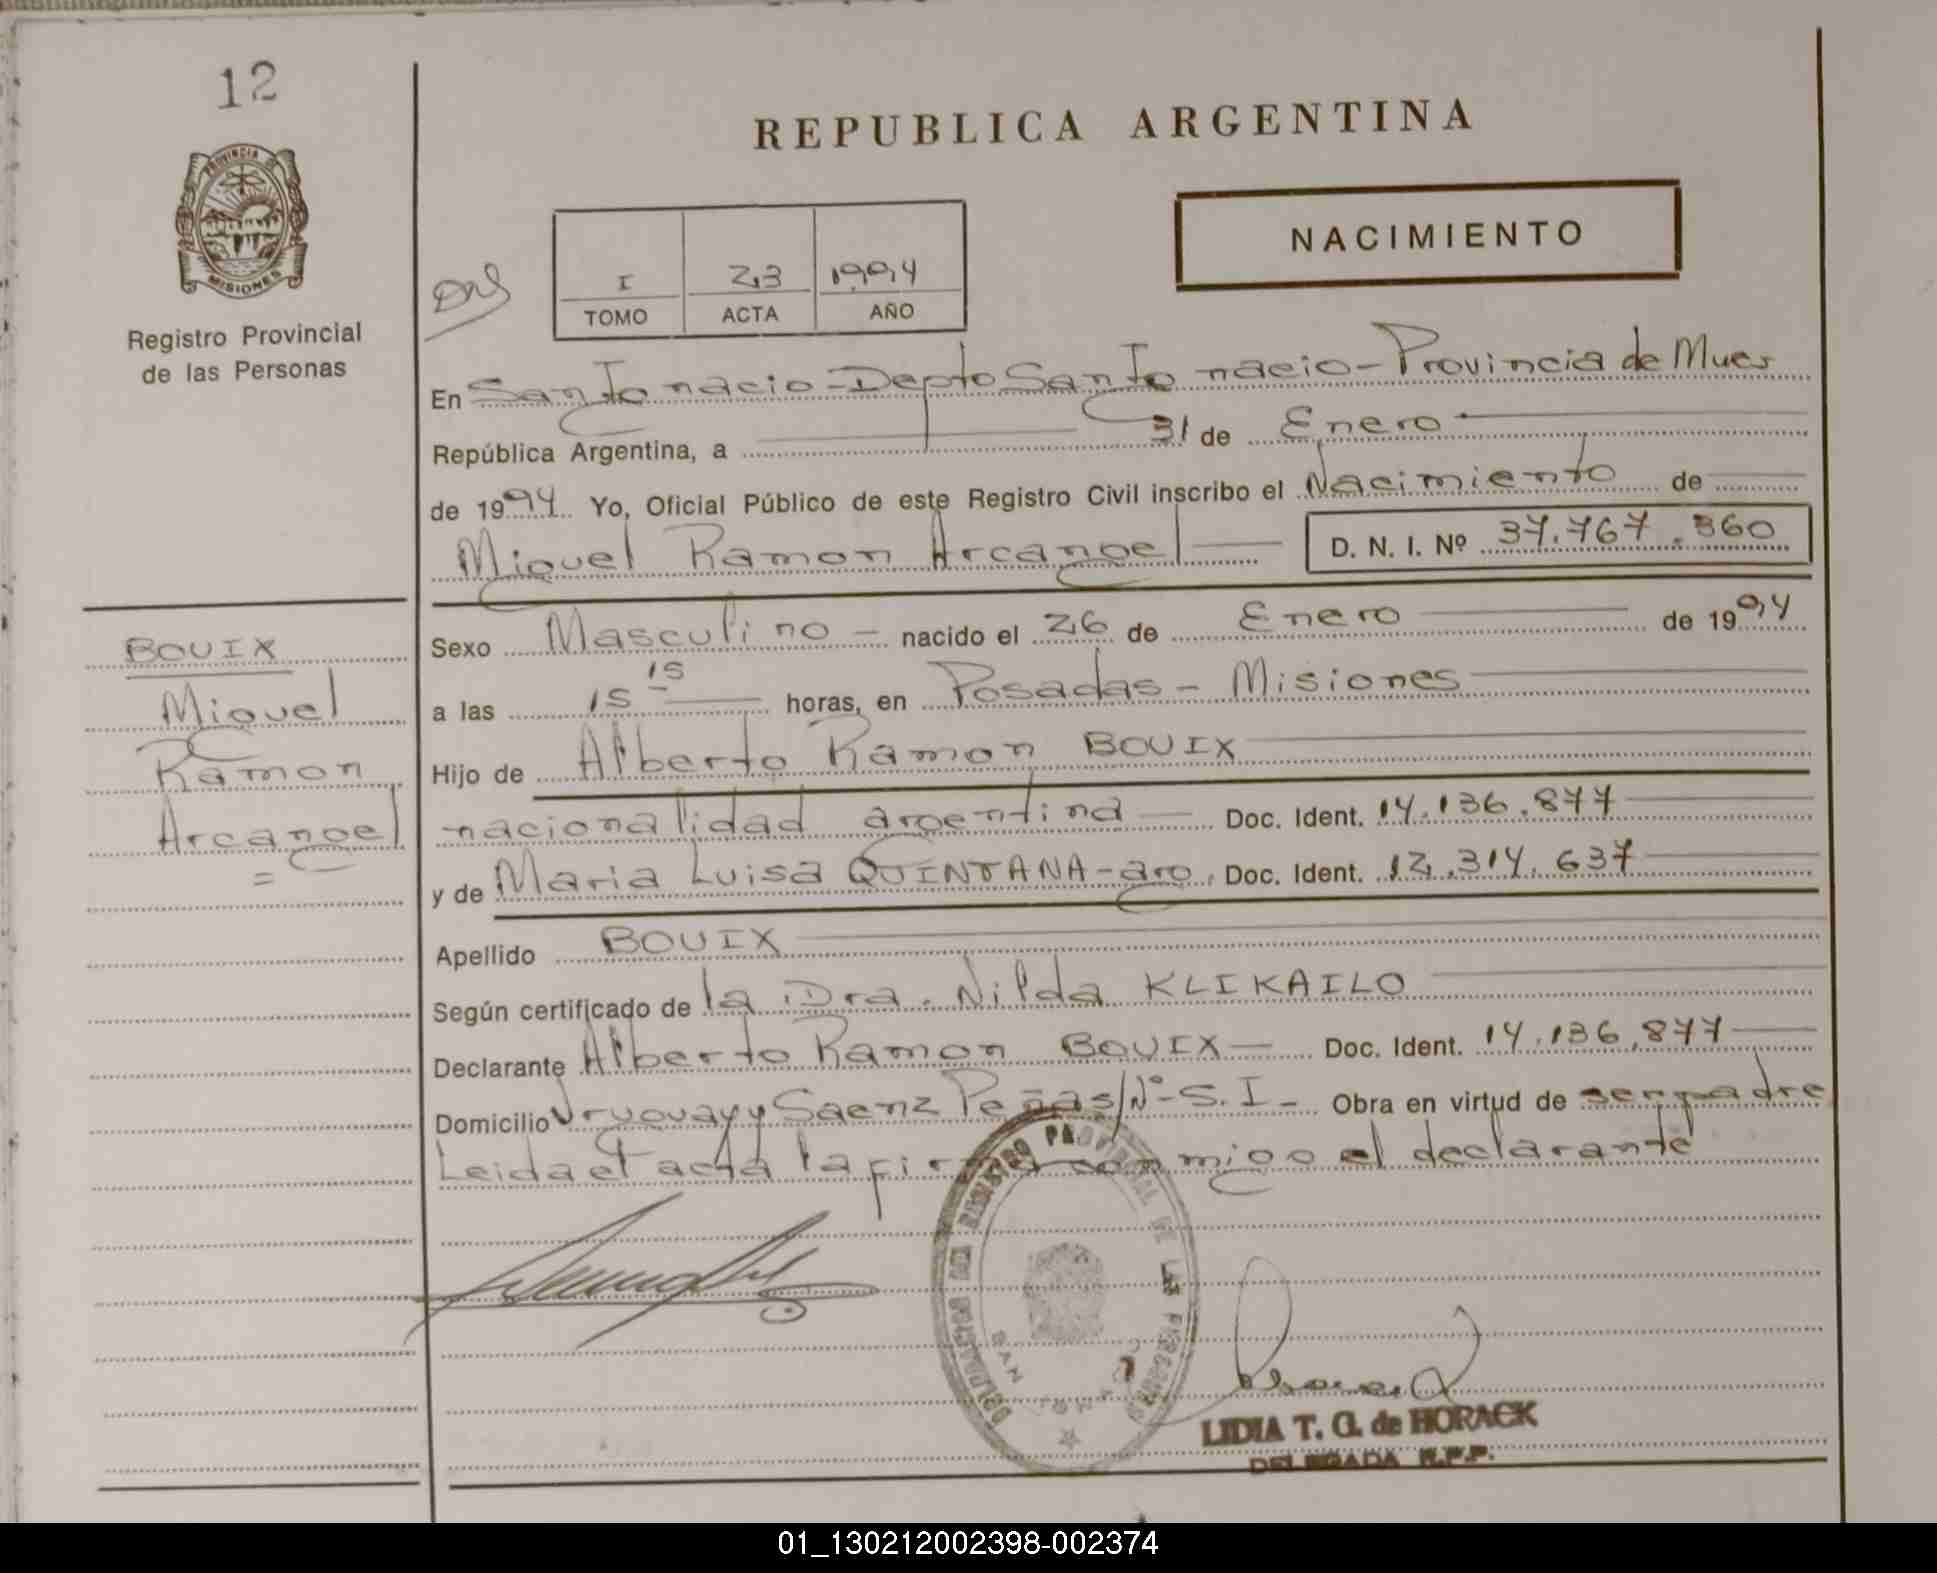 12
REPUBLICA ARGENTINA
PROVINCIA DE
MISIONES
NACIMIENTO
I 23 1994
TOMO ACTA AÑO
Registro Provincial
de las Personas
En San Ignacio - Depto San Ignacio - Provincia de Mnes
República Argentina, a 31 de Enero
de 1994 Yo, Oficial Público de este Registro Civil inscribo el Nacimiento de
Miguel Ramon Arcangel D. N. I. Nº 37.767.360
BOUIX
Miguel
Ramon
Arcangel
=
Sexo Masculino - nacido el 26 de Enero de 1994
a las 15 15 horas, en Posadas - Misiones
Hijo de Alberto Ramon BOUIX
nacionalidad argentina Doc. Ident. 14.136.877
y de Maria Luisa QUINTANA - arg. Doc. Ident. 12.314.637
Apellido BOUIX
Según certificado de la Dra. Nilda KLIKAILO
Declarante Alberto Ramon BOUIX Doc. Ident. 14.136.877
Domicilio Uruguay y Saenz Peña S/Nº - S.I - Obra en virtud de ser padre
Leida el acta la firma conmigo el declarante
DELEGACION DEL REGISTRO PROVINCIAL DE LAS PERSONAS
SAN IGNACIO
LIDIA T. G. de HORACK
DELEGADA R.P.P.
01_130212002398-002374